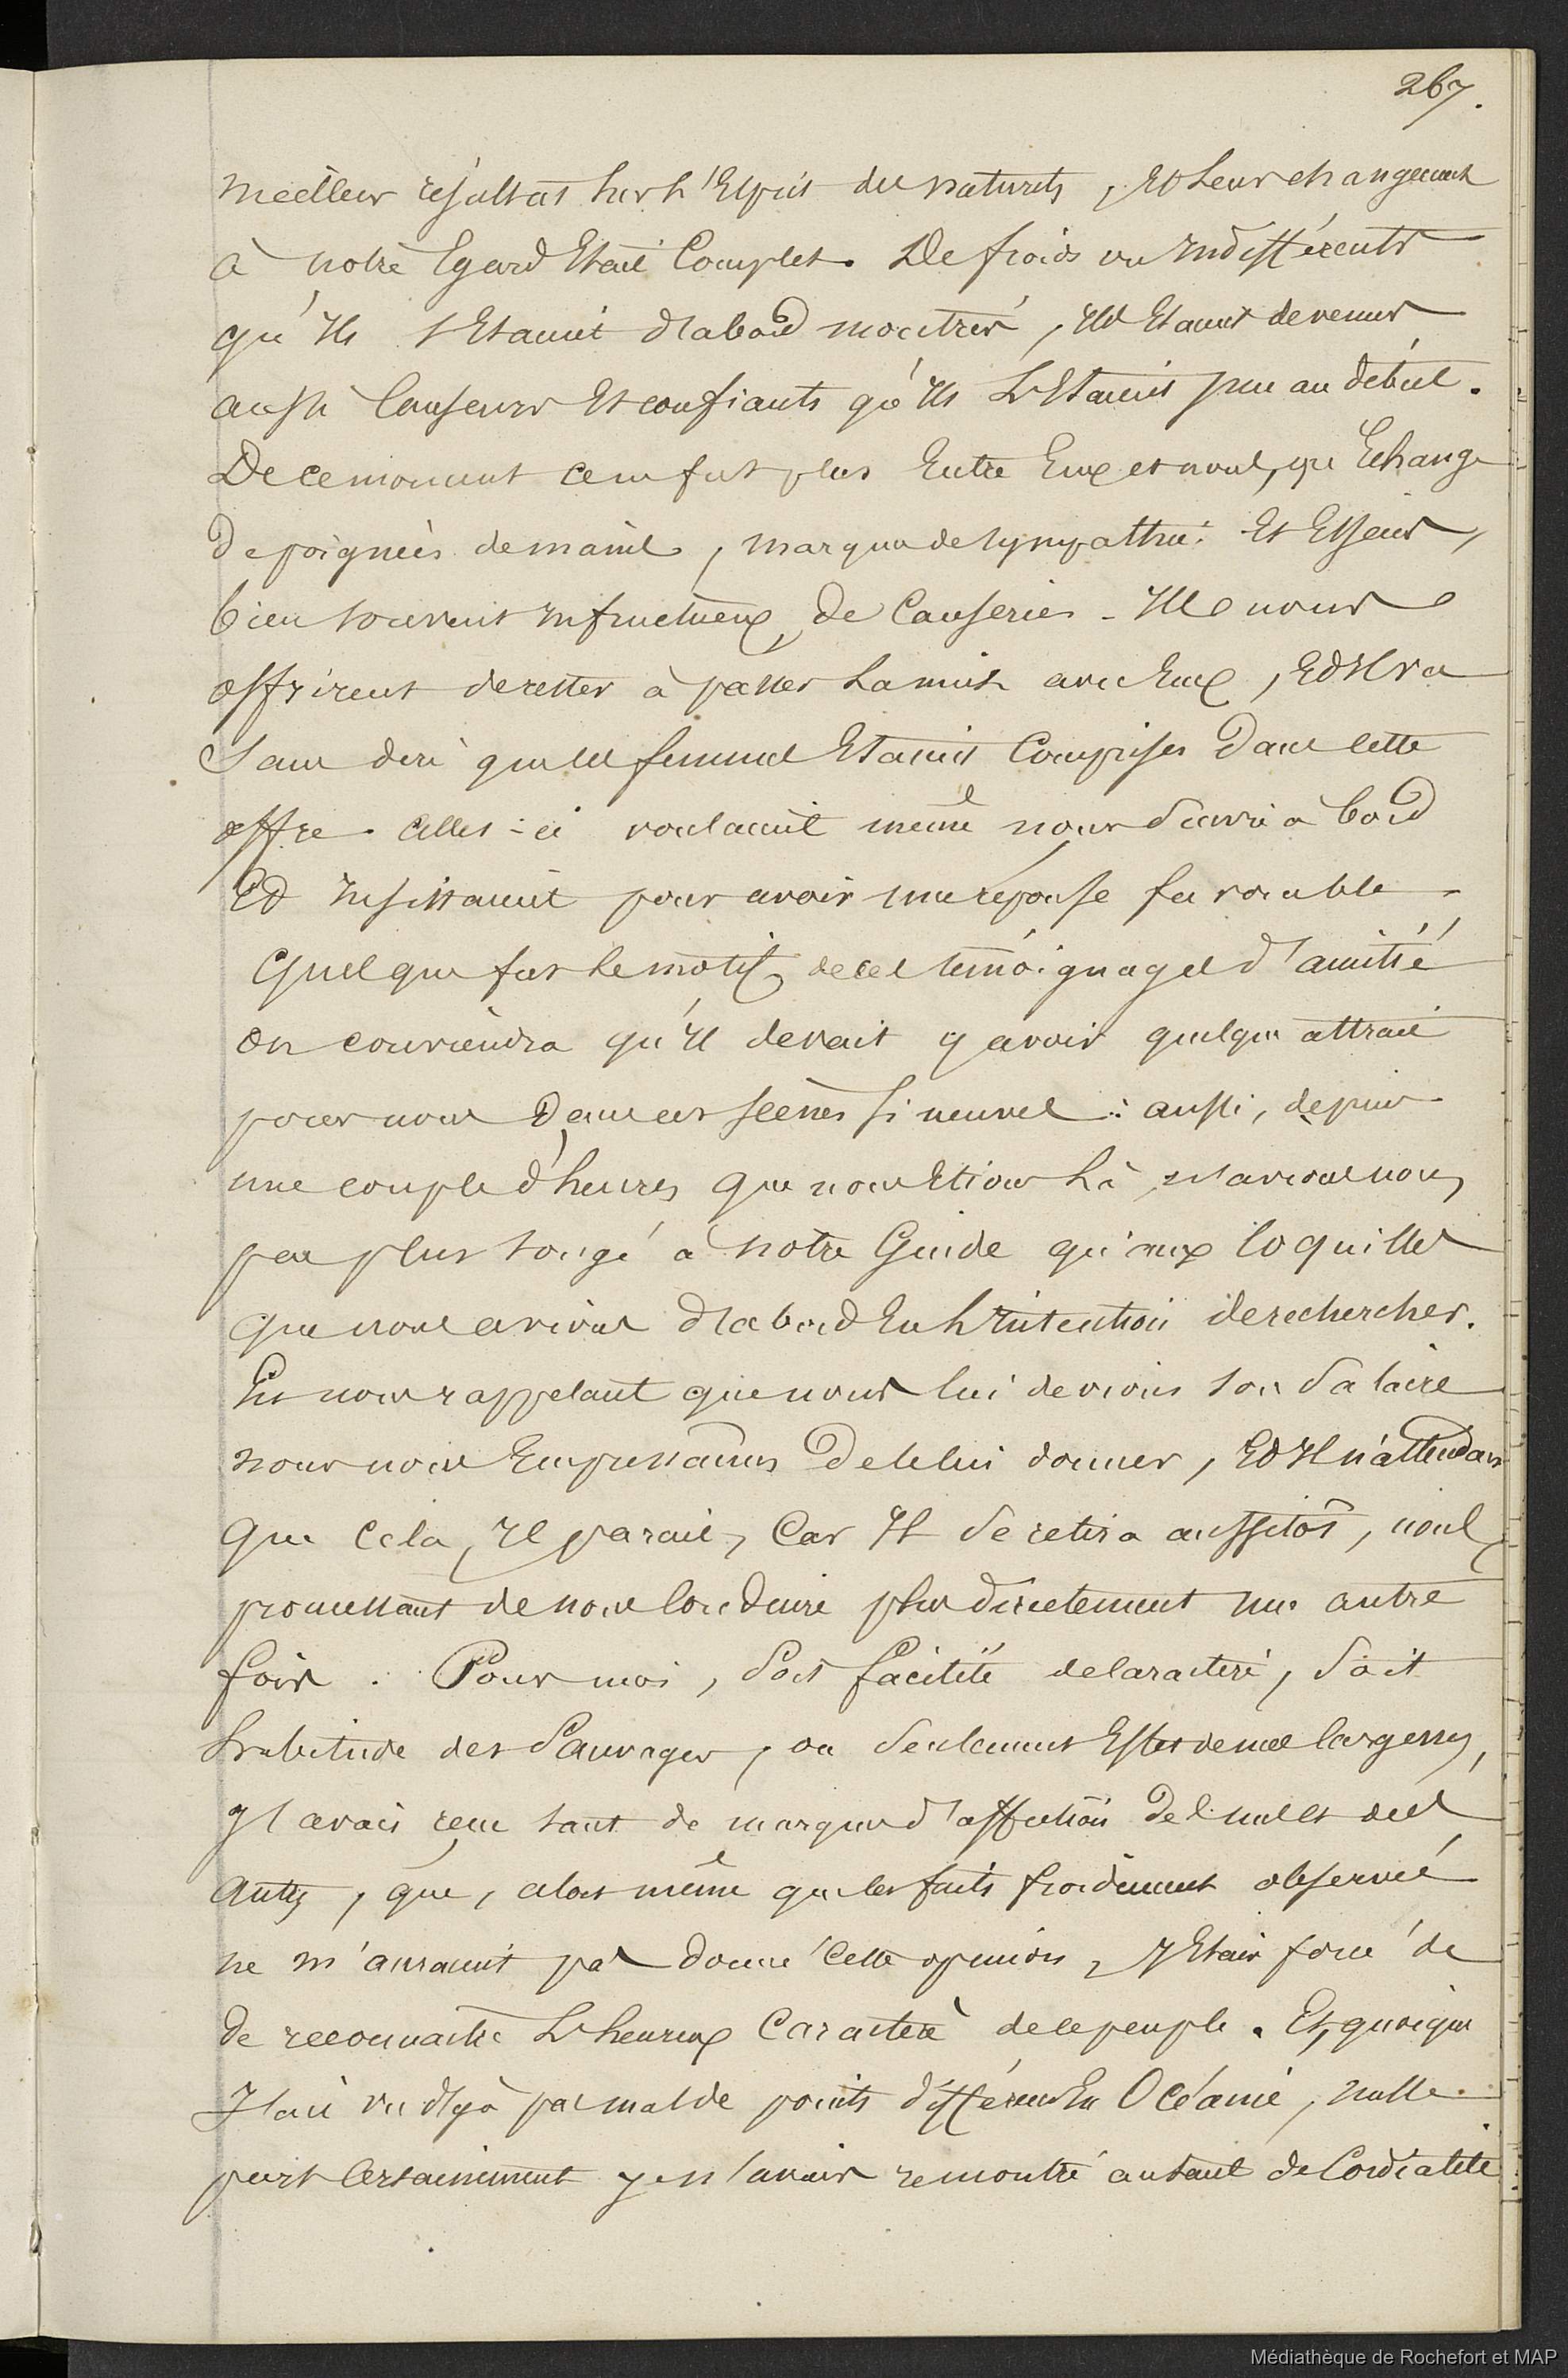 267.
meilleur résultat sur l'Esprit des naturels, Et leur changement
à notre Egard Etait Complet. De froids ou Indifférents
qu'Ils s'Etaient d'abord montrés, Ils Etaient devenus
aussi Causeurs Et confiants qu'Ils L'Etaient peu au début.
De ce moment ce ne fut plus Entre Eux et nous, qu'Echange
de poignées de mains, marques de sympathie Et Essais,
bien souvent Infructueux, de Causeries - Ils nous
offrirent de rester à passer la nuit avec Eux, Et Il va
sans dire que les femmes Etaient Comprises dans cette
offre. Celles-ci voulaient même nous suivre à bord
Et Insistaient pour avoir une réponse favorable.
Quelque fut le motif de ces témoignages d'amitié
on conviendra qu'Il devait y avoir quelque attrait
pour nous dans ces scènes si neuves : aussi, depuis
une couple d'heures que nous Etions Là, n'avions nous
pas plus songé à notre Guide qu'aux Coquilles
que nous avions d'abord Eu L'Intention de rechercher.
En nous rappelant que nous lui devions son salaire
nous nous Empressâmes de le lui donner, Et Il n'attendait
que Cela, Il parait, Car Il se retira aussitôt, nous
promettant de nous Conduire plus directement une autre
fois. Pour moi, soit facilité de Caractère, soit
habitude des Sauvages, ou seulement Effet de mes largesses,
J'avais reçu tant de marques d'affection de l'uns et des
autres, que, alors même que les faits froidement observés
ne m'auraient pas donné Cette opinion, J'Etais forcé de
de reconnaitre L'heureux Caractère de ce peuple. Et, quoique
J'aie vu déjà pas mal de points différents En Océanie, nulle
part Certainement je n'avais rencontré autant de Cordialité
Médiathèque de Rochefort et MAP